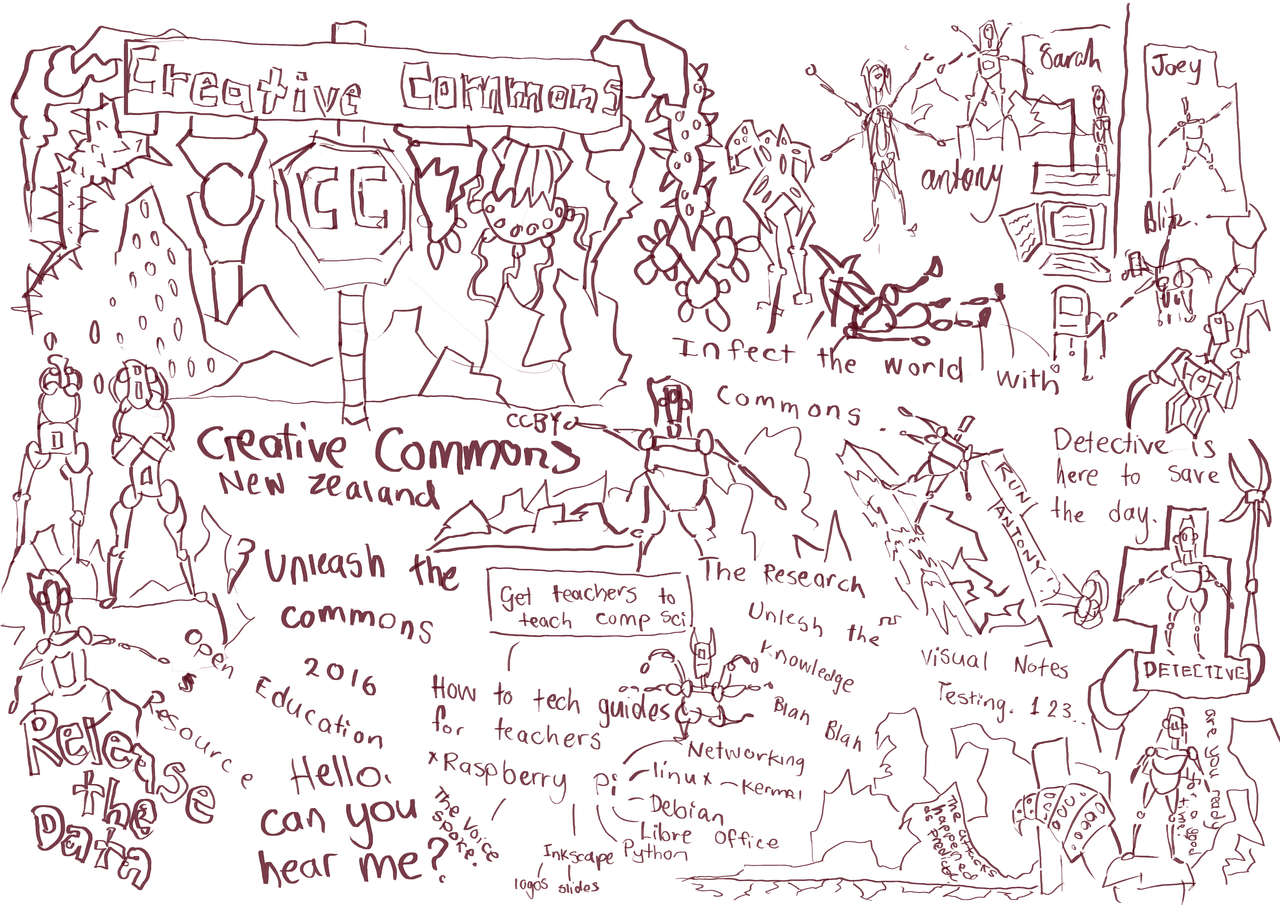 Creative Commons
CC
Sarah
Joey
antony
Blitz.
Infect the world with
Commons.
CCBY
Creative Commons
New Zealand
Detective is
here to save
the day.
RUN
ANTONY
Unleash the
commons
2016
Get teachers to
teach comp sci
The Research
Unlesh the
Knowledge
Blah Blah
Visual Notes
Testing. 1 2 3..
DETECTIVE
Open Education
Resources
Release
the
Data
How to tech guides
for teachers
x Raspberry Pi
Networking
linux - Kermal
Debian
Libre Office
Python
Inkscape
logos slides
Hello.
can you
hear me?
The Voice
spoke.
The attacks
happened
as predicted.
are you ready
for a good
time